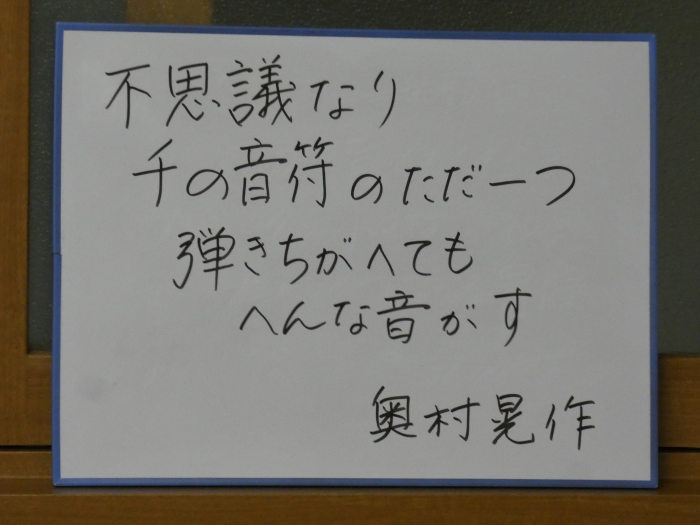 不思議なり
千の音符のただ一つ
弾きちがへても
へんな音がす
奥村晃作